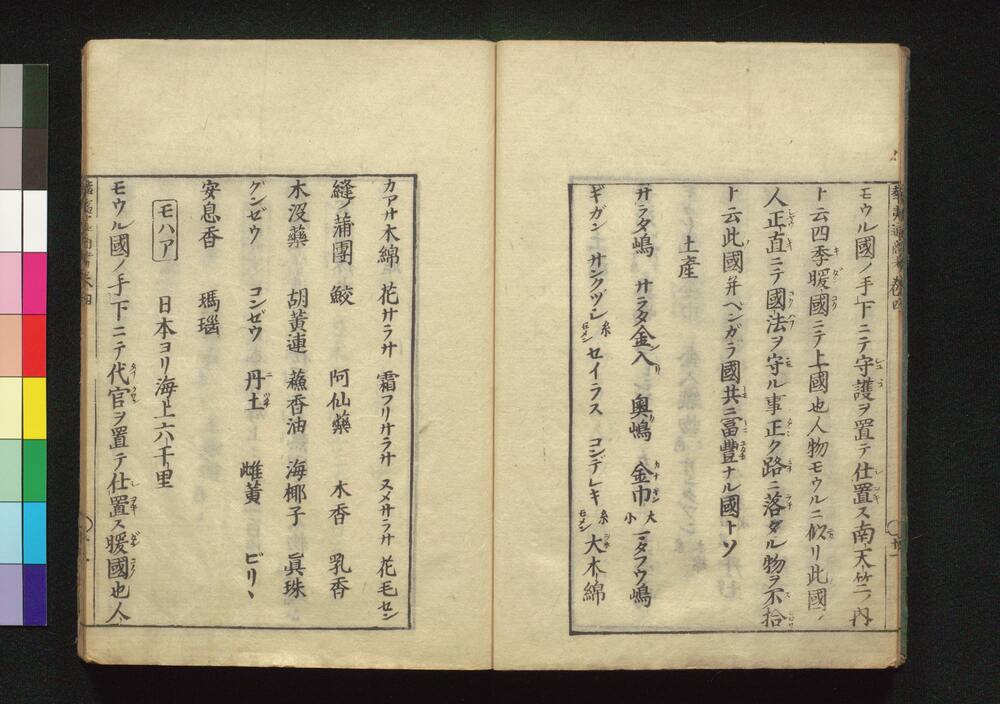 モウル國ノ手下ニテ守護ヲ置テ仕置ス南天竺ノ内
ト云四季暖國ニテ上國也人物モウルニ似リ此國ノ
人正直ニテ國法ヲ守ル事正ク路ニ落タル物ヲ不拾
ト云此國并ベンガラ國共ニ冨豐ナル國トソ
土産
サラタ嶋 サラタ金入 奥嶋 金巾 大小 タフウ嶋
ギガン サングツシ 糸モメン セイラス コンデレキ 糸モメン 大木綿
カアサ木綿 花サラサ 霜フリサラサ スメサラサ 花毛セン
縫ノ蒲團 鮫 阿仙藥 木香 乳香
木沒藥 胡黄連 蘓香油 海椰子 眞珠
グンゼウ コンゼウ 丹土 雌黄 ビリヽ
安息香 瑪瑙
モハア 日本ヨリ海上六千里
モウル國ノ手下ニテ代官ヲ置テ仕置ス暖國也人